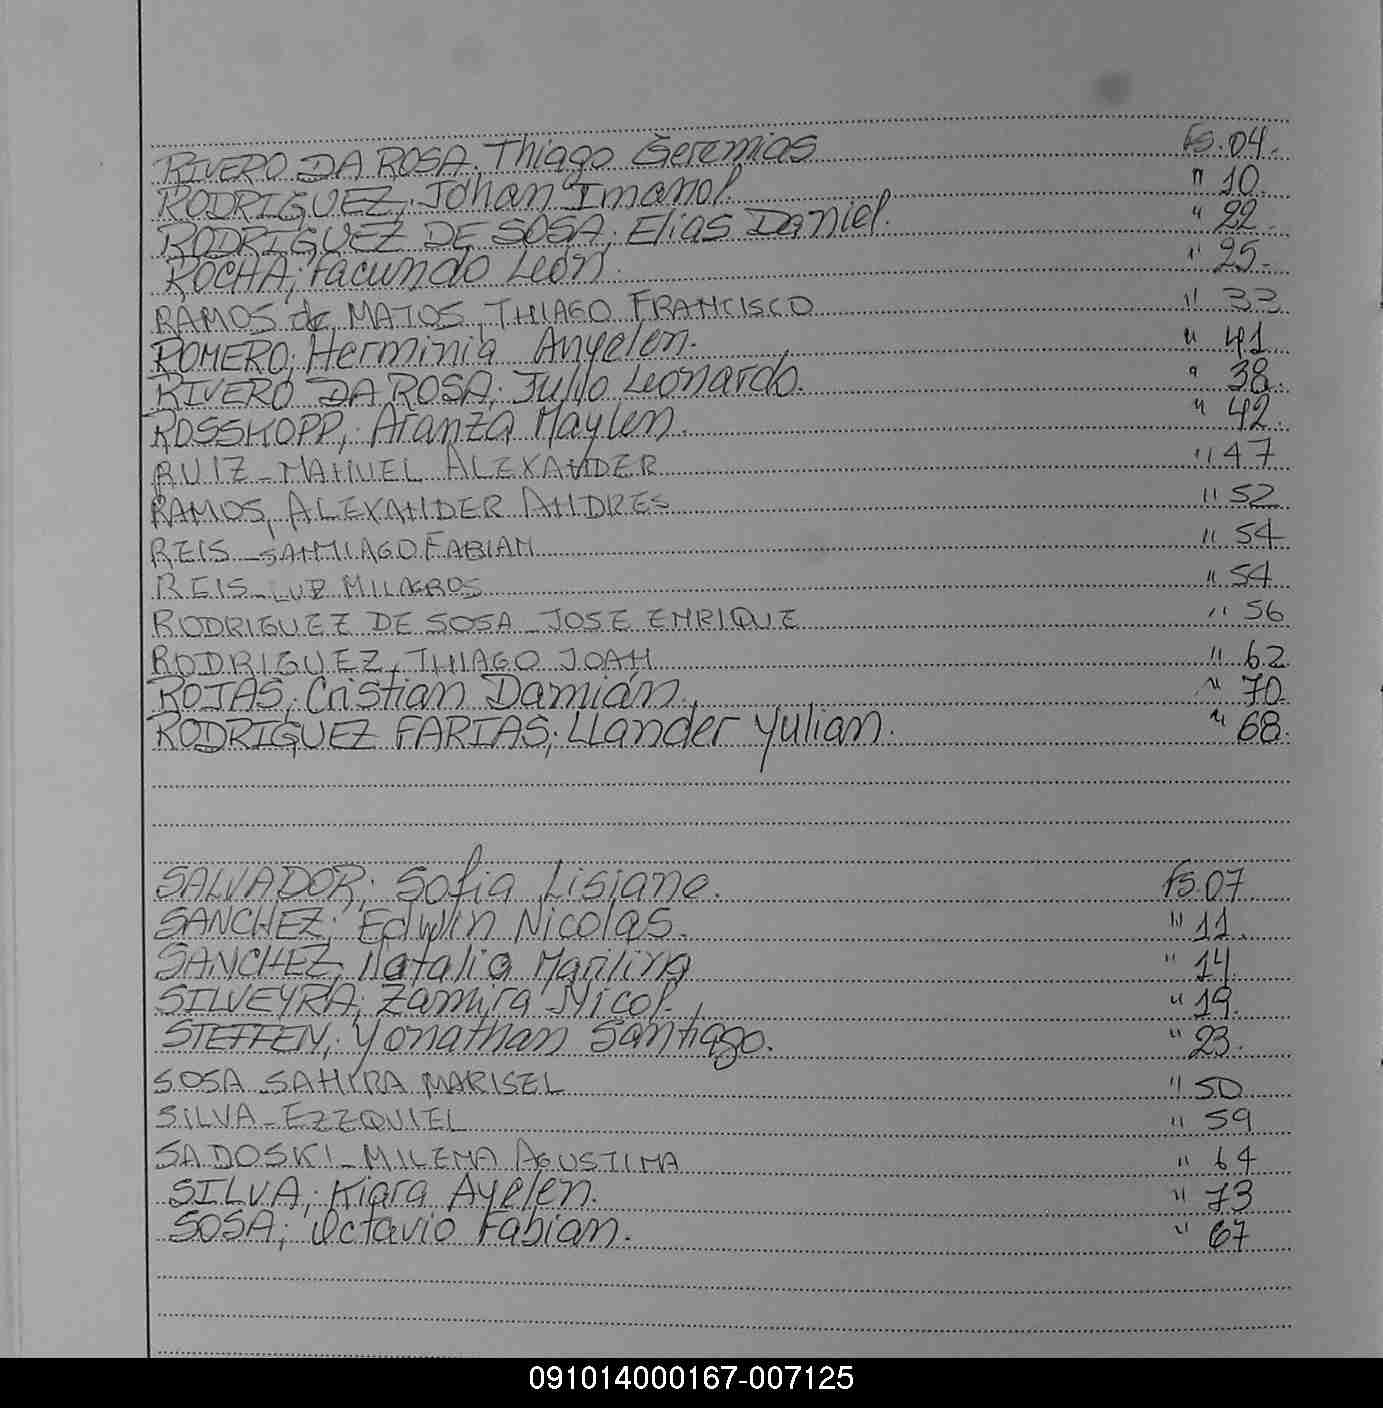 RIVERO DA ROSA, Thiago Geremias Fs. 04.
RODRIGUEZ; Johan Imanol. " 10.
RODRIGUEZ DE SOSA; Elias Daniel. " 22.
ROCHA; Facundo León. " 25.
RAMOS de MATOS, THIAGO FRANCISCO " 33
ROMERO; Herminia Anyelen. " 41
RIVERO DA ROSA; Julio Leonardo. " 38.
ROSSKOPP; Aranza Maylen. " 42.
RUIZ - MANUEL ALEXANDER " 47
RAMOS, ALEXANDER ANDRES " 52
REIS - SANTIAGO FABIAN " 54
REIS - LUZ MILAGROS " 54
RODRIGUEZ DE SOSA - JOSE ENRIQUE " 56
RODRIGUEZ, THIAGO JOAN " 62
ROJAS; Cristian Damián. " 70
RODRIGUEZ FARIAS; Llander Yulian. " 68.
SALVADOR; Sofia Lisiane. Fs. 07
SANCHEZ; Edwin Nicolas. " 11.
SANCHEZ, Natalia Marilina " 14.
SILVEYRA; Zamira Nicol. " 19.
STEFFEN; Yonathan Santiago. " 23.
SOSA SAHIRA MARISEL " 50
SILVA - EZZEQUIEL " 59
SADOSKI - MILENA AGUSTINA " 64
SILVA; Kiara Ayelen. " 73
SOSA; Octavio Fabian. " 67
091014000167-007125